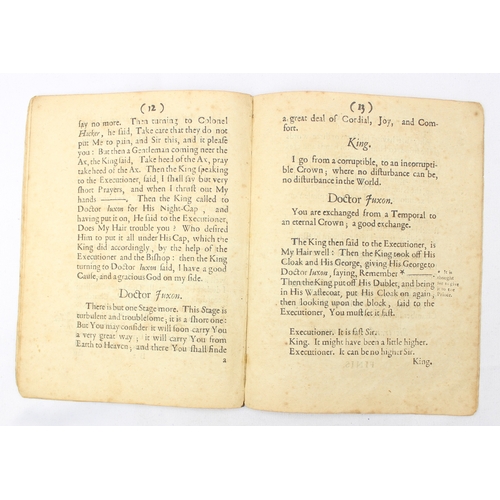 ( 12 )
say no more. Then turning to Colonel
Hacker, he said, Take care that they do not
put Me to pain, and Sir this, and it please
you: But then a Gentleman coming neer the
Ax, the King said, Take heed of the Ax, pray
take heed of the Ax. Then the King speaking
to the Executioner, said, I shall say but very
short Prayers, and when I thrust out My
hands ———. Then the King called to
Doctor Juxon for His Night-Cap, and
having put it on, He said to the Executioner,
Does My Hair trouble you? Who desired
Him to put it all under His Cap, which the
King did accordingly, by the help of the
Executioner and the Bishop: then the King
turning to Doctor Juxon said, I have a good
Cause, and a gracious God on my side.
Doctor Juxon.
There is but one Stage more. This Stage is
turbulent and troublesome; it is a short one:
But You may consider it will soon carry You
a very great way; it will carry You from
Earth to Heaven; and there You shall finde
a
( 13 )
a great deal of Cordial, Joy, and Com-
fort.
King.
I go from a corruptible, to an incorrupti-
ble Crown; where no disturbance can be,
no disturbance in the World.
Doctor Juxon.
You are exchanged from a Temporal to
an eternal Crown; a good exchange.
The King then said to the Executioner, is
My Hair well: Then the King took off His
Cloak and His George, giving His George to
Doctor Juxon, saying, Remember *——
Then the King put off His Dublet, and being
in His Wastecoat, put His Cloak on again,
then looking upon the block, said to the
Executioner, You must set it fast.
* It is
thought
for
to give
it to the
Prince.
Executioner. It is fast Sir.
King. It might have been a little higher.
Executioner. It can be no higher Sir.
King.